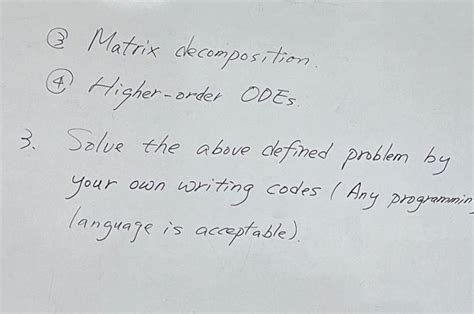 ③ Matrix decomposition.
④ Higher-order ODEs.
3. Solve the above defined problem by
your own writing codes (Any programmin
language is acceptable).